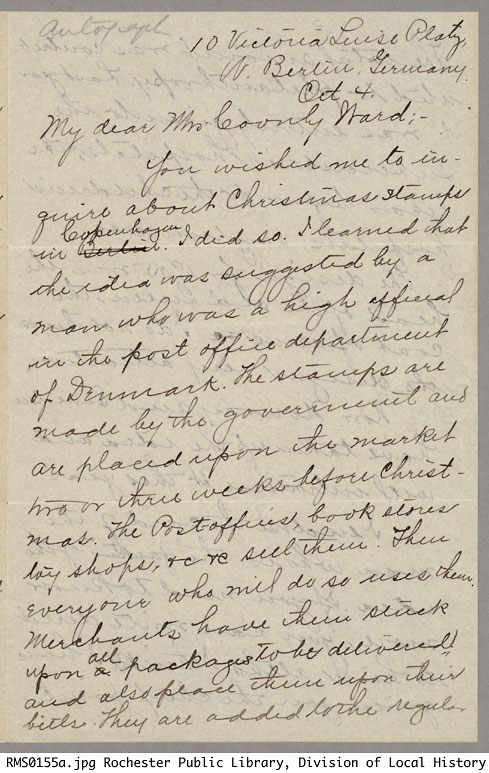 Autograph
10 Victoria Luise Platz,
W. Berlin, Germany.
Oct 4.
My dear Mrs Coonly Ward;-
You wished me to in-
quire about Christmas stamps
Copenhagen
in Berlin. I did so. I learned that
the idea was suggested by a
man who was a high official
in the post office department
of Denmark. The stamps are
made by the government and
are placed upon the market
two or three weeks before Christ-
mas. The Postoffices, book stores
toy shops, &c &c sell them. Then
everyone who will do so uses them.
Merchants have them stuck
upon all packages to be delivered
and also place them upon their
bills. They are added to the regular
RMS0155a.jpg Rochester Public Library, Division of Local History